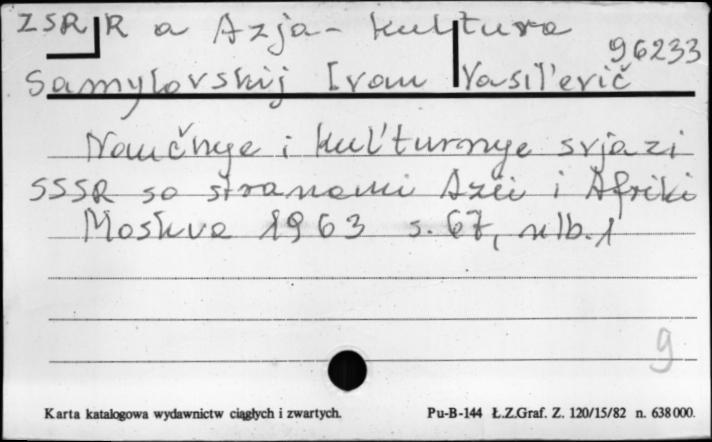 ZSRR a Azja - kultura
96233
Samylovskij Ivan Vasil'evič
Naučnye i kul'turnye svjazi
SSSR so stranami Azii i Afriki
Moskva 1963 s. 67, nlb. 1
9
Karta katalogowa wydawnictw ciągłych i zwartych.
Pu-B-144 Ł.Z.Graf. Z. 120/15/82 n. 638000.